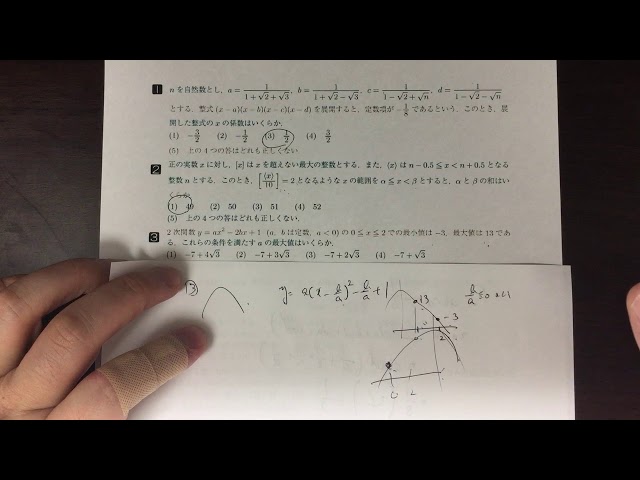 1 nを自然数とし、a = 1/(1+√2+√3), b = 1/(1+√2−√3), c = 1/(1−√2+√n), d = 1/(1−√2−√n)
とする。整式 (x−a)(x−b)(x−c)(x−d) を展開すると、定数項が −1/8 であるという。このとき、展
開した整式の x の係数はいくらか。
(1) −3/2 (2) −1/2 (3) 1/2 (4) 3/2
(5) 上の4つの答はどれも正しくない
2 正の実数 x に対し、[x] は x を超えない最大の整数とする。また、⟨x⟩ は n−0.5 ≦ x < n+0.5 となる
整数 n とする。このとき、[⟨x⟩/10] = 2 となるような x の範囲を α ≦ x < β とすると、α と β の和はい
くらか
(1) 49 (2) 50 (3) 51 (4) 52
(5) 上の4つの答はどれも正しくない。
3 2次関数 y = ax² − 2bx + 1 (a, b は定数, a < 0) の 0 ≦ x ≦ 2 での最小値は −3, 最大値は 13 であ
る。これらの条件を満たす a の最大値はいくらか。
(1) −7+4√3 (2) −7+3√3 (3) −7+2√3 (4) −7+√3
3
y = a(x − b/a)² − b/a + 1
13
−3
2
0